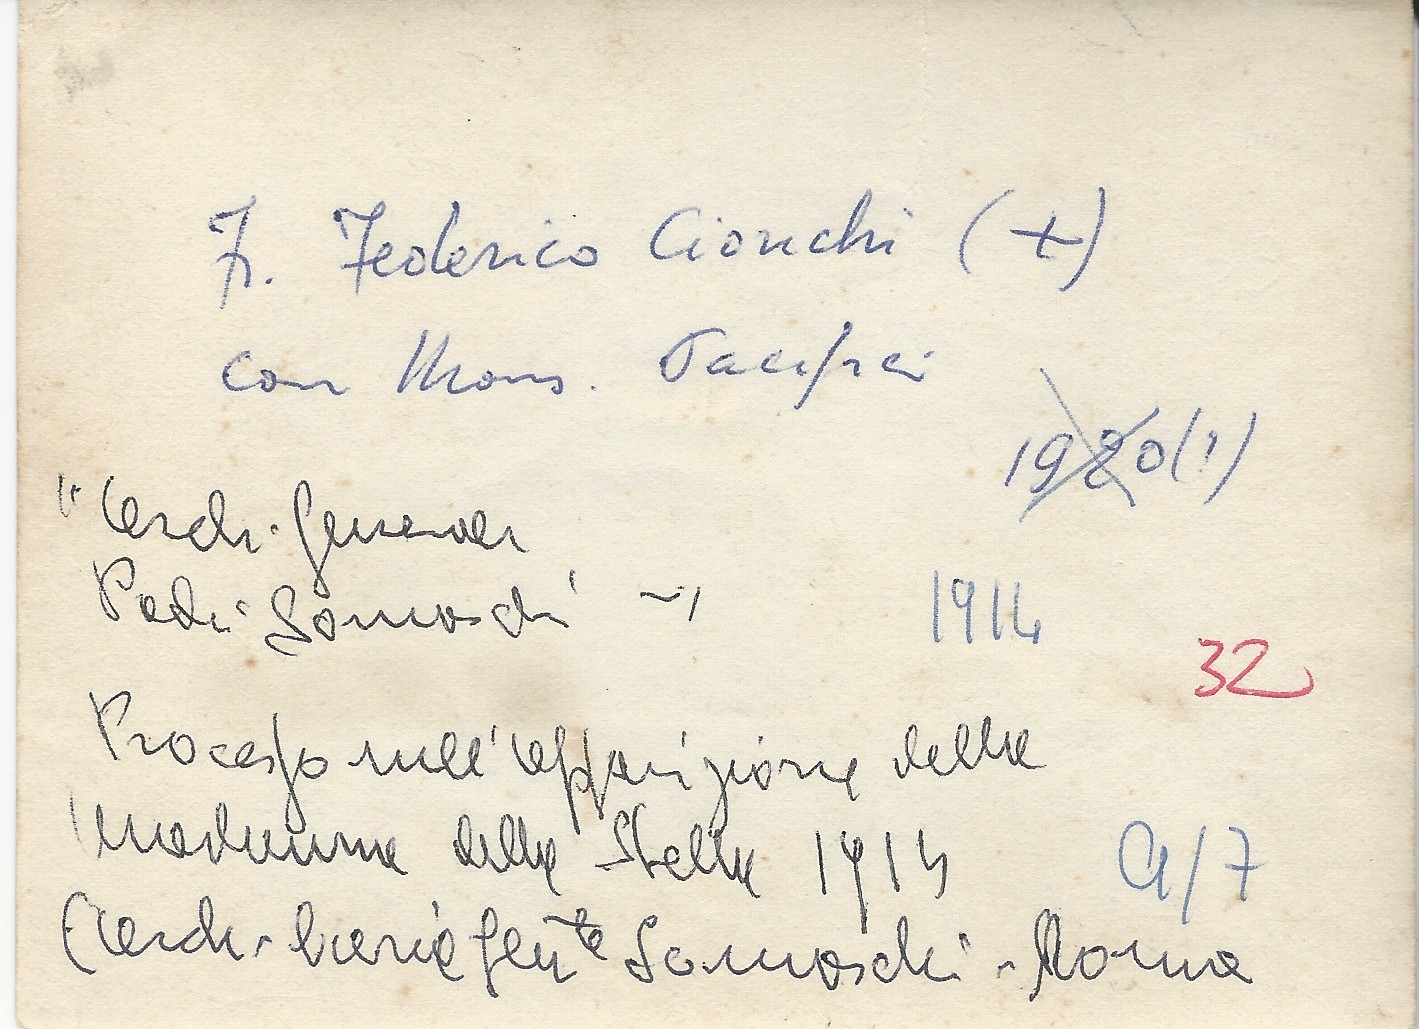 F. Federico Cionchi (+)
con Mons. Pacifici
1920(?)
"Arch. Generale
Padri Somaschi
1914
32
Processo sull'apparizione della
Madonna della Stella 1914
A/7
(Arch. Curia Gen.te Somaschi - Roma